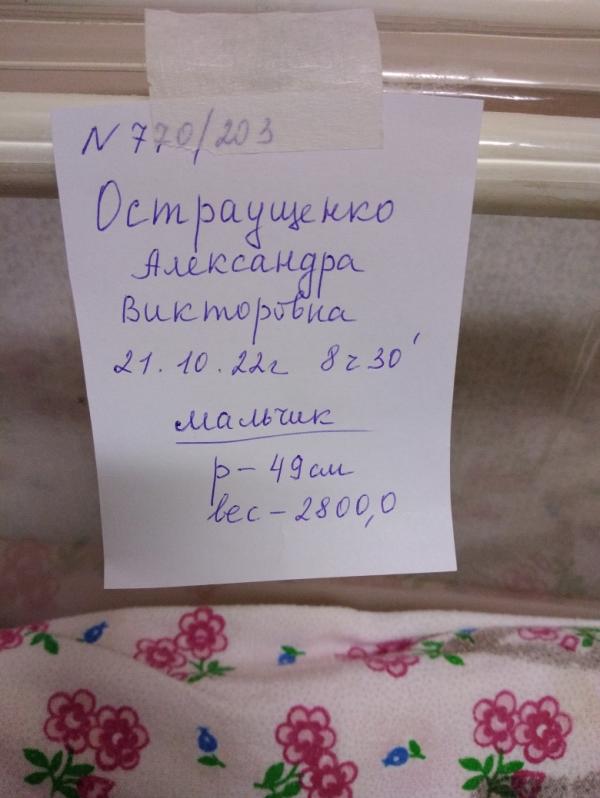 N 770/203
Остраущенко
Александра
Викторовна
21.10.22г 8ч30'
мальчик
р-49см
вес-2800,0